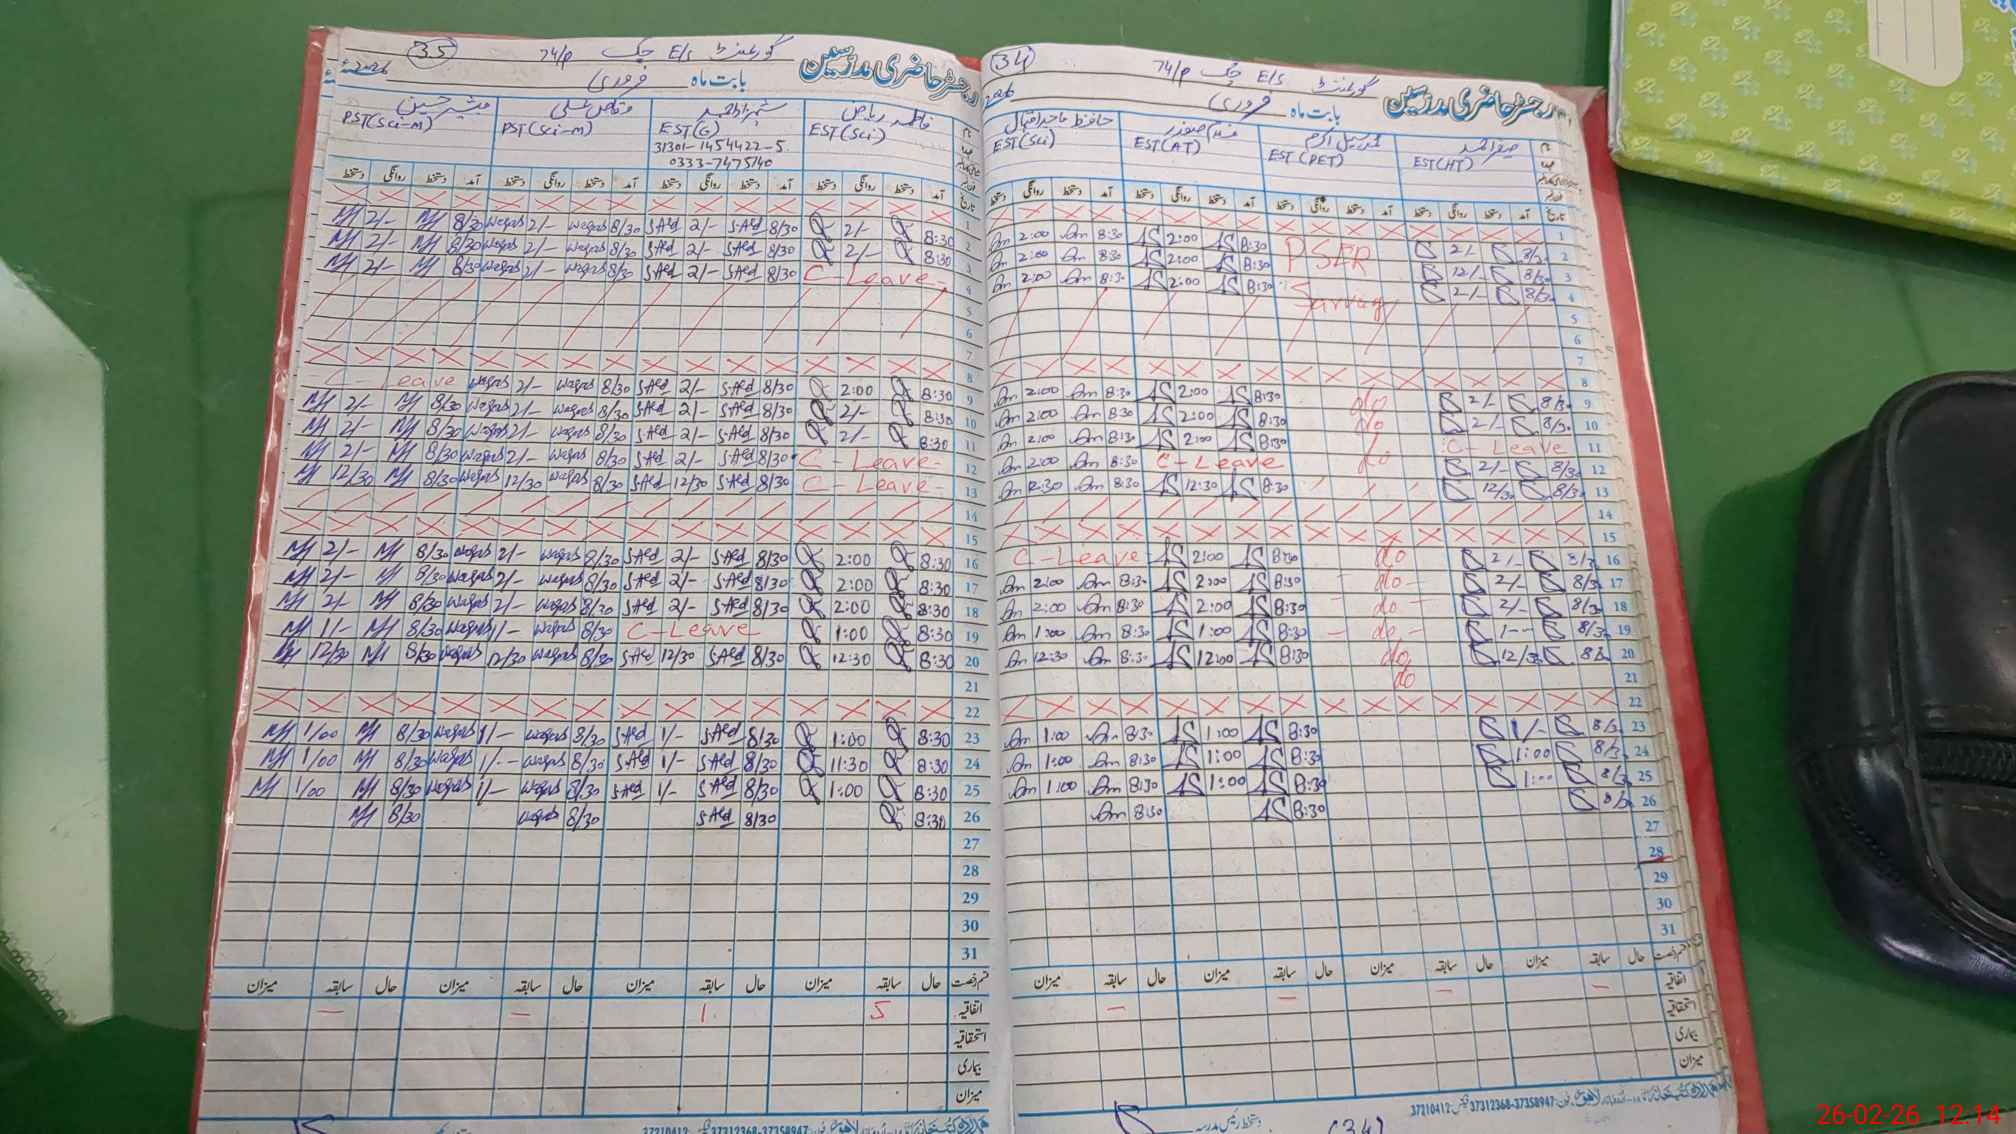 35 گورنمنٹ E/s چک 74/P
رجسٹر حاضری مدرسین بابت ماہ فروری 2026ء
فاطمہ ریاض EST(Sci)
شہزاد احمد EST(G) 31301-1454422-5 0333-7475140
وقاص علی PST(Sci-M)
مبشر حسین PST(Sci-M)
تاریخ آمد دستخط روانگی دستخط آمد دستخط روانگی دستخط آمد دستخط روانگی دستخط آمد دستخط روانگی دستخط
1
2 8:30 2/- 8/30 S.Aed 2/- S.Aed 8/30 waqas 2/- waqas 8/30 M 2/- M
3 8:30 2/- 8/30 S.Aed 2/- S.Aed 8/30 waqas 2/- waqas 8/30 M 2/- M
4 C-Leave- 8/30 S.Aed 2/- S.Aed 8/30 waqas 2/- waqas 8/30 M 2/- M
5
6
7
8
9 8:30 2:00 8/30 S.Aed 2/- S.Aed 8/30 waqas 2/- waqas C-Leave
10 8:30 2/- 8/30 S.Aed 2/- S.Aed 8/30 waqas 2/- waqas 8/30 M 2/- M
11 8:30 2/- 8/30 S.Aed 2/- S.Aed 8/30 waqas 2/- waqas 8/30 M 2/- M
12 C-Leave- 8/30 S.Aed 2/- S.Aed 8/30 waqas 2/- waqas 8/30 M 2/- M
13 C-Leave- 8/30 S.Aed 12/30 S.Aed 8/30 waqas 12/30 waqas 8/30 M 12/30 M
14
15
16 8:30 2:00 8/30 S.Aed 2/- S.Aed 8/30 waqas 2/- waqas 8/30 M 2/- M
17 8:30 2:00 8/30 S.Aed 2/- S.Aed 8/30 waqas 2/- waqas 8/30 M 2/- M
18 8:30 2:00 8/30 S.Aed 2/- S.Aed 8/30 waqas 2/- waqas 8/30 M 2/- M
19 8:30 1:00 C-Leave 8/30 waqas 1/- waqas 8/30 M 1/- M
20 8:30 12:30 8/30 S.Aed 12/30 S.Aed 8/30 waqas 12/30 waqas 8/30 M 12/30 M
21
22
23 8:30 1:00 8/30 S.Aed 1/- S.Aed 8/30 waqas 1/- waqas 8/30 M 1/00 M
24 8:30 11:30 8/30 S.Aed 1/- S.Aed 8/30 waqas 1/- waqas 8/30 M 1/00 M
25 8:30 1:00 8/30 S.Aed 1/- S.Aed 8/30 waqas 1/- waqas 8/30 M 1/00 M
26 8:30 8/30 S.Aed 8/30 waqas 8/30 M
27
28
29
30
31
قسم رخصت حال سابقہ میزان حال سابقہ میزان حال سابقہ میزان حال سابقہ میزان
اتفاقیہ 5 1 - -
استحقاقیہ
بیماری
میزان
37210412 37312368-37358947
34 گورنمنٹ E/s چک 74/P
رجسٹر حاضری مدرسین بابت ماہ فروری 2026
EST(HT)
EST(PET)
EST(AT)
حافظ ماجد اقبال EST(Sci)
تاریخ آمد دستخط روانگی دستخط آمد دستخط روانگی دستخط آمد دستخط روانگی دستخط آمد دستخط روانگی دستخط
1
2 8/30 2/- PSER 8:30 AS 2:00 AS 8:30 Am 2:00 Am
3 8/30 12/- 8:30 AS 2:00 AS 8:30 Am 2:00 Am
4 8/30 2/- Survay 8:30 AS 2:00 AS 8:30 Am 2:00 Am
5
6
7
8
9 8/30 2/- do 8:30 AS 2:00 AS 8:30 Am 2:00 Am
10 8/30 2/- do 8:30 AS 2:00 AS 8:30 Am 2:00 Am
11 C-Leave do 8:30 AS 2:00 AS 8:30 Am 2:00 Am
12 8/30 2/- do C-Leave 8:30 Am 2:00 Am
13 8/30 12/30 8:30 AS 12:30 AS 8:30 Am 12:30 Am
14
15
16 8/30 2/- do 8:30 AS 2:00 AS C-Leave
17 8/30 2/- do 8:30 AS 2:00 AS 8:30 Am 2:00 Am
18 8/30 2/- do 8:30 AS 2:00 AS 8:30 Am 2:00 Am
19 8/30 1-- do 8:30 AS 1:00 AS 8:30 Am 1:00 Am
20 8/30 12/30 do 8:30 AS 12:00 AS 8:30 Am 12:30 Am
21 do
22
23 8/30 1/- 8:30 AS 1:00 AS 8:30 Am 1:00 Am
24 8/30 1:00 8:30 AS 1:00 AS 8:30 Am 1:00 Am
25 8/30 1:00 8:30 AS 1:00 AS 8:30 Am 1:00 Am
26 8/30 8:30 AS 8:30 Am
27
28
29
30
31
قسم رخصت حال سابقہ میزان حال سابقہ میزان حال سابقہ میزان حال سابقہ میزان
اتفاقیہ - - - -
استحقاقیہ
بیماری
میزان
37210412 37312368-37358947
دستخط رئیس مدرسہ
(34)
26-02-26 12.14